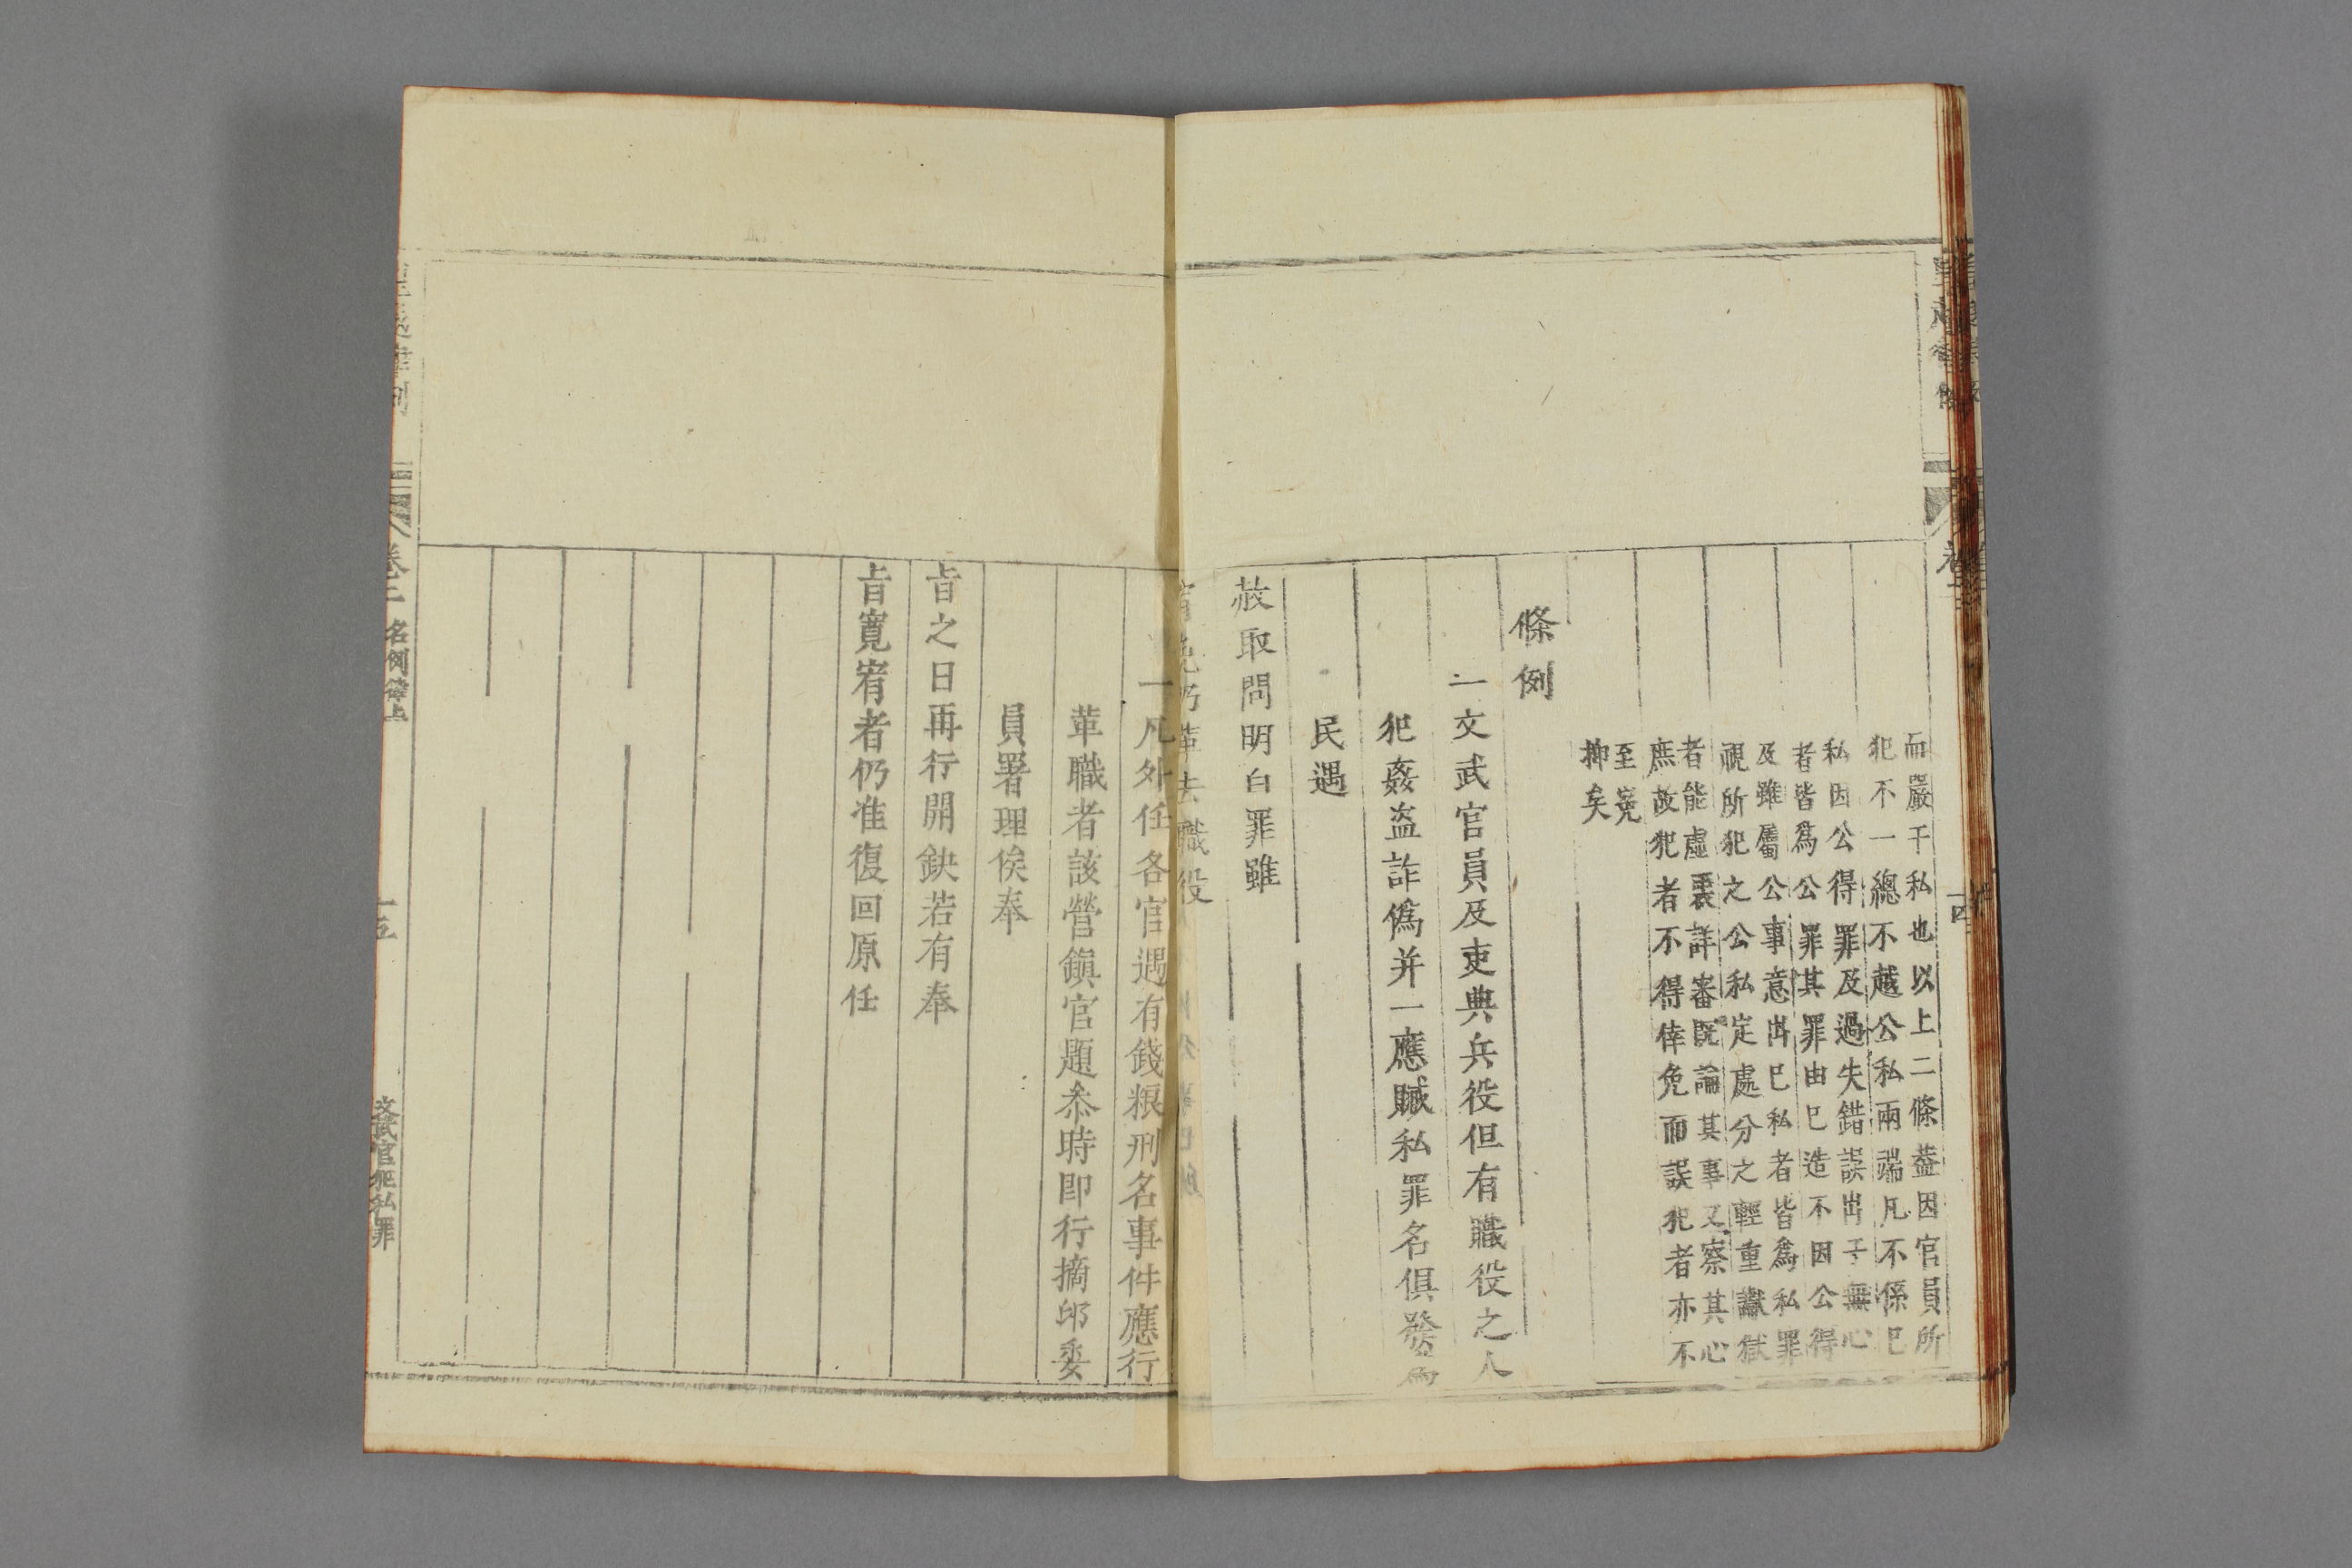 而嚴于私也以上二條蓋因官員所
犯不一總不越公私兩端凡不係已
私因公得罪及過失錯誤出于無心
者皆爲公罪其罪由已造不因公得
及雖屬公事意出已私者皆爲私罪
視所犯之公私定處分之輕重讞獄
者能虛衷詳審既論其事又察其心
庶故犯者不得倖免而誤犯者亦不
至冤
抑矣
條例
一文武官員及吏典兵役但有職役之人
犯姦盜詐僞并一應贓私罪名俱發爲
民遇
赦取問明白罪雖
宥免仍革去職役
一凡外任各官遇有錢粮刑名事件應行
革職者該營鎮官題叅時即行摘印委
員署理俟奉
旨之日再行開缺若有奉
旨寬宥者仍准復回原任
卷二 名例律上
十五
文武官犯私罪